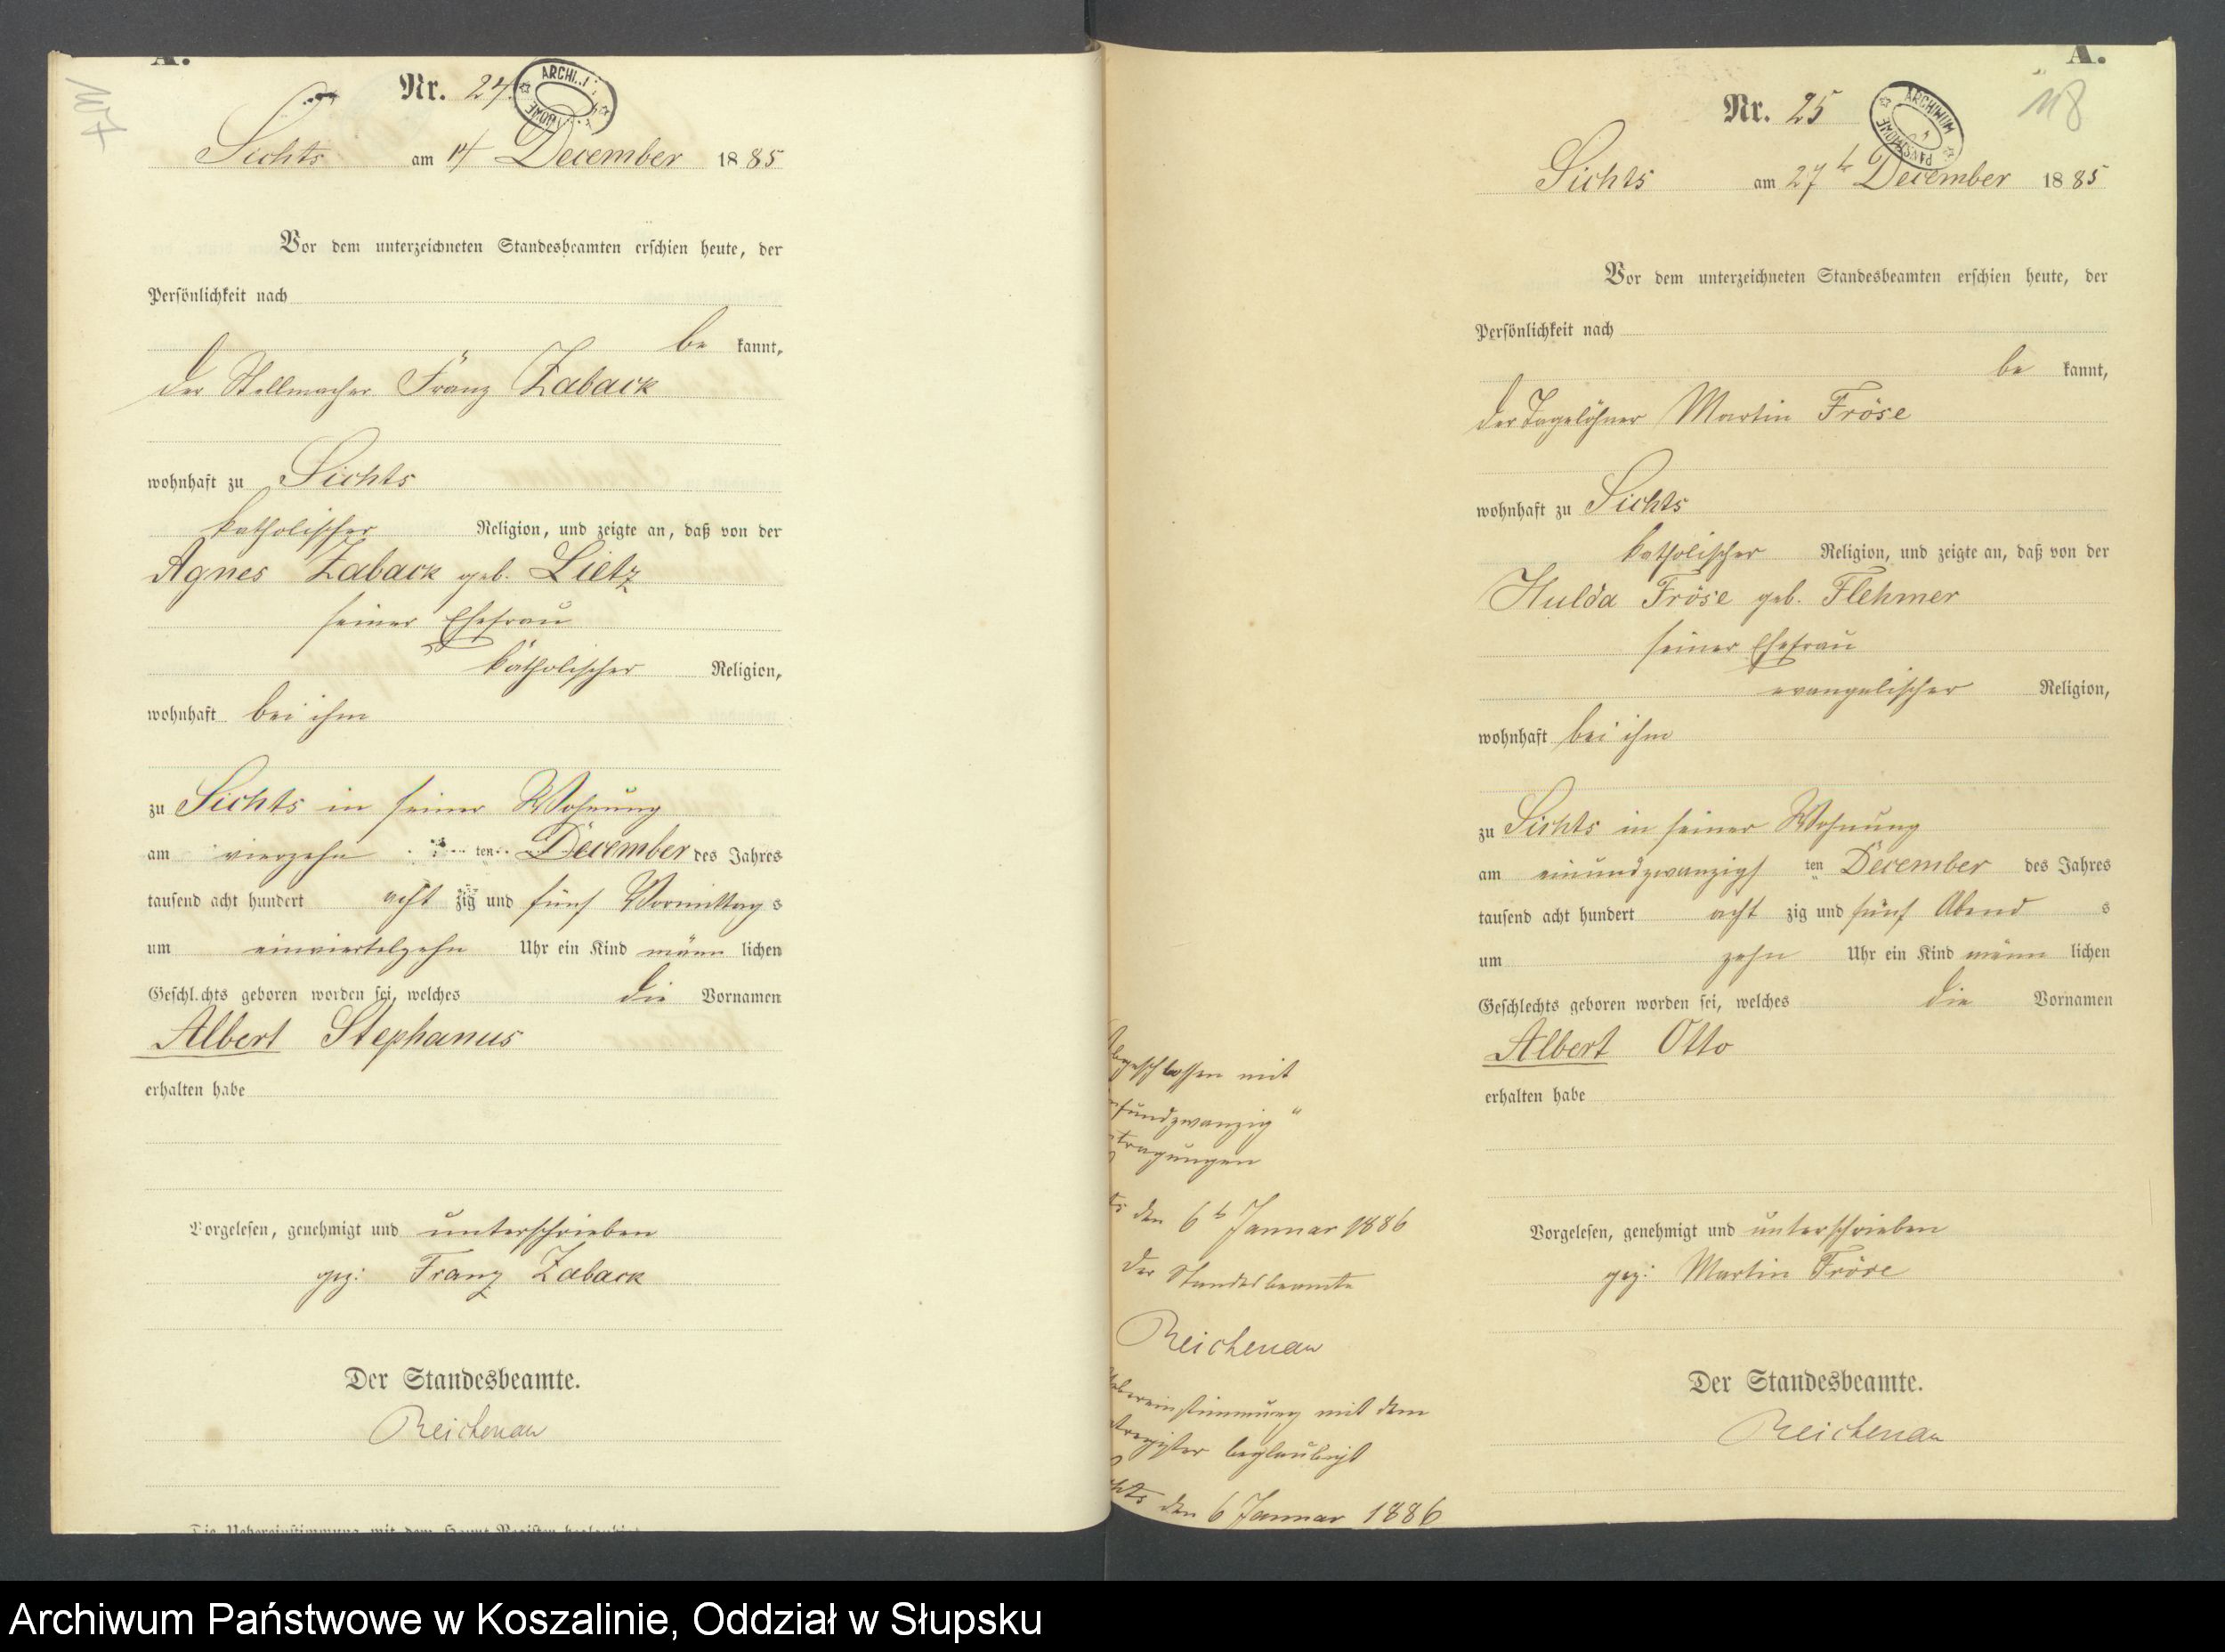 A.
Nr. 24.
Sichts am 14 December 1885
Vor dem unterzeichneten Standesbeamten erschien heute, der
Persönlichkeit nach
be kannt,
der Stellmacher Franz Zaback
wohnhaft zu Sichts
katholischer Religion, und zeigte an, daß von der
Agnes Zaback geb. Lietz
seiner Ehefrau
katholischer Religion,
wohnhaft bei ihm
zu Sichts in seiner Wohnung
am vierzehn ten December des Jahres
tausend acht hundert acht zig und fünf Vormittag s
um einviertelzehn Uhr ein Kind männ lichen
Geschlechts geboren worden sei, welches die Vornamen
Albert Stephanus
erhalten habe
Vorgelesen, genehmigt und unterschrieben
gez: Franz Zaback
Der Standesbeamte.
Reichenau
Die Uebereinstimmung mit dem Haupt-Register beglaubigt
A.
118
Nr. 25
ARCHIWUM PAŃSTWOWE
Sichts am 27t December 1885
Vor dem unterzeichneten Standesbeamten erschien heute, der
Persönlichkeit nach
be kannt,
der Tagelöhner Martin Fröse
wohnhaft zu Sichts
katholischer Religion, und zeigte an, daß von der
Hulda Fröse geb. Flehmer
seiner Ehefrau
evangelischer Religion,
wohnhaft bei ihm
zu Sichts in seiner Wohnung
am einundzwanzigs ten December des Jahres
tausend acht hundert acht zig und fünf Abend s
um zehn Uhr ein Kind männ lichen
Geschlechts geboren worden sei, welches die Vornamen
Albert Otto
erhalten habe
Vorgelesen, genehmigt und unterschrieben
gez: Martin Fröse
Der Standesbeamte.
Reichenau
Abgeschlossen mit
fundzwanzig"
tragungen
ts den 6t Januar 1886
Der Standesbeamte
Reichenau
Uebereinstimmung mit dem
tregister beglaubigt
hts den 6 Januar 1886
Archiwum Państwowe w Koszalinie, Oddział w Słupsku